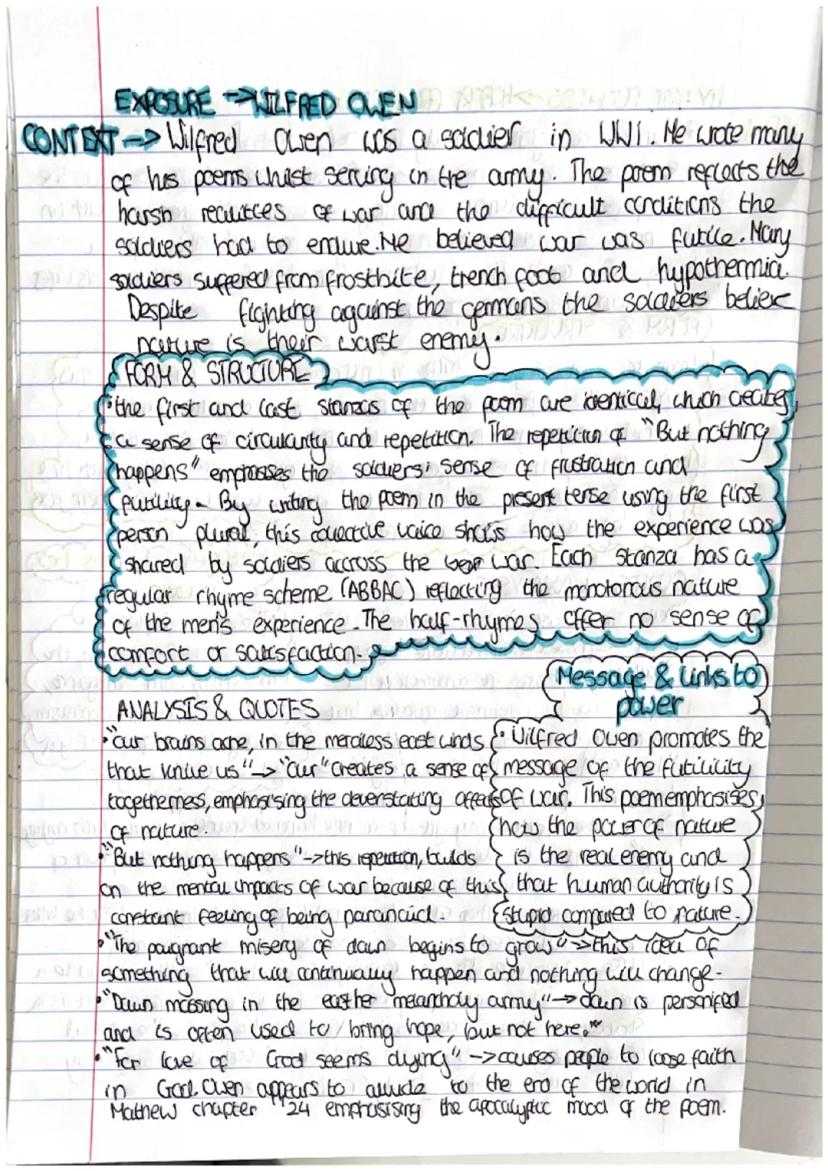 EXPOSURE → WILFRED OWEN
CONTEXT → Wilfred Owen was a soldier in WW1. He wrote many
of his poems whilst serving in the army. The poem reflects the
harsh realities of war and the difficult conditions the
soldiers had to endure. He believed war was futile. Many
soldiers suffered from frostbite, trench foot and hypothermia.
Despite fighting against the germans the soldiers believe
nature is their worst enemy.
FORM & STRUCTURE
• the first and last stanzas of the poem are identical, which creates
a sense of circularity and repetition. The repetition of "But nothing
happens" emphasises the soldiers' sense of frustration and
futility. By writing the poem in the present tense using the first
person plural, this collective voice shows how the experience was
shared by soldiers accross the war. Each stanza has a
regular rhyme scheme (ABBAC) reflecting the monotonous nature
of the men's experience. The half-rhymes offer no sense of
comfort or satisfaction.
Message & Links to
power
• Wilfred Owen promotes the
message of the futility
of war. This poem emphasises
how the power of nature
is the real enemy and
that human authority is
stupid compared to nature.
ANALYSIS & QUOTES
• "Our brains ache, in the merciless east winds
that knive us" → "our" creates a sense of
togetherness, emphasising the deverstating affects
of nature.
• "But nothing happens" → this repetition, builds
on the mental impacts of war because of this
constant feeling of being paranoid.
• "The pougnant misery of dawn begins to grow" → this idea of
something that will continually happen and nothing will change.
• "Dawn massing in the easther melancholy army" → dawn is personified
and is often used to bring hope, but not here.
• "For love of God seems dying" → causes people to loose faith
in God. Owen appears to allude to the end of the world in
Mathew chapter 24 emphasising the apocalyptic mood of the poem.